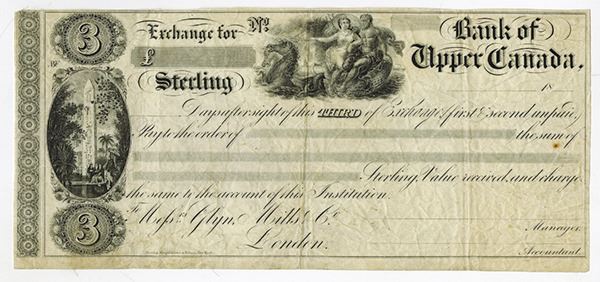 3
Exchange for Nº
£
Sterling
Bank of
Upper Canada,
18
Days after sight of this THIRD of Exchange (first & second unpaid)
Pay to the order of the sum of
Sterling, Value received, and charge
the same to the account of this Institution.
To Messrs. Glyn, Mills & Co.
London.
Manager.
Accountant.
3